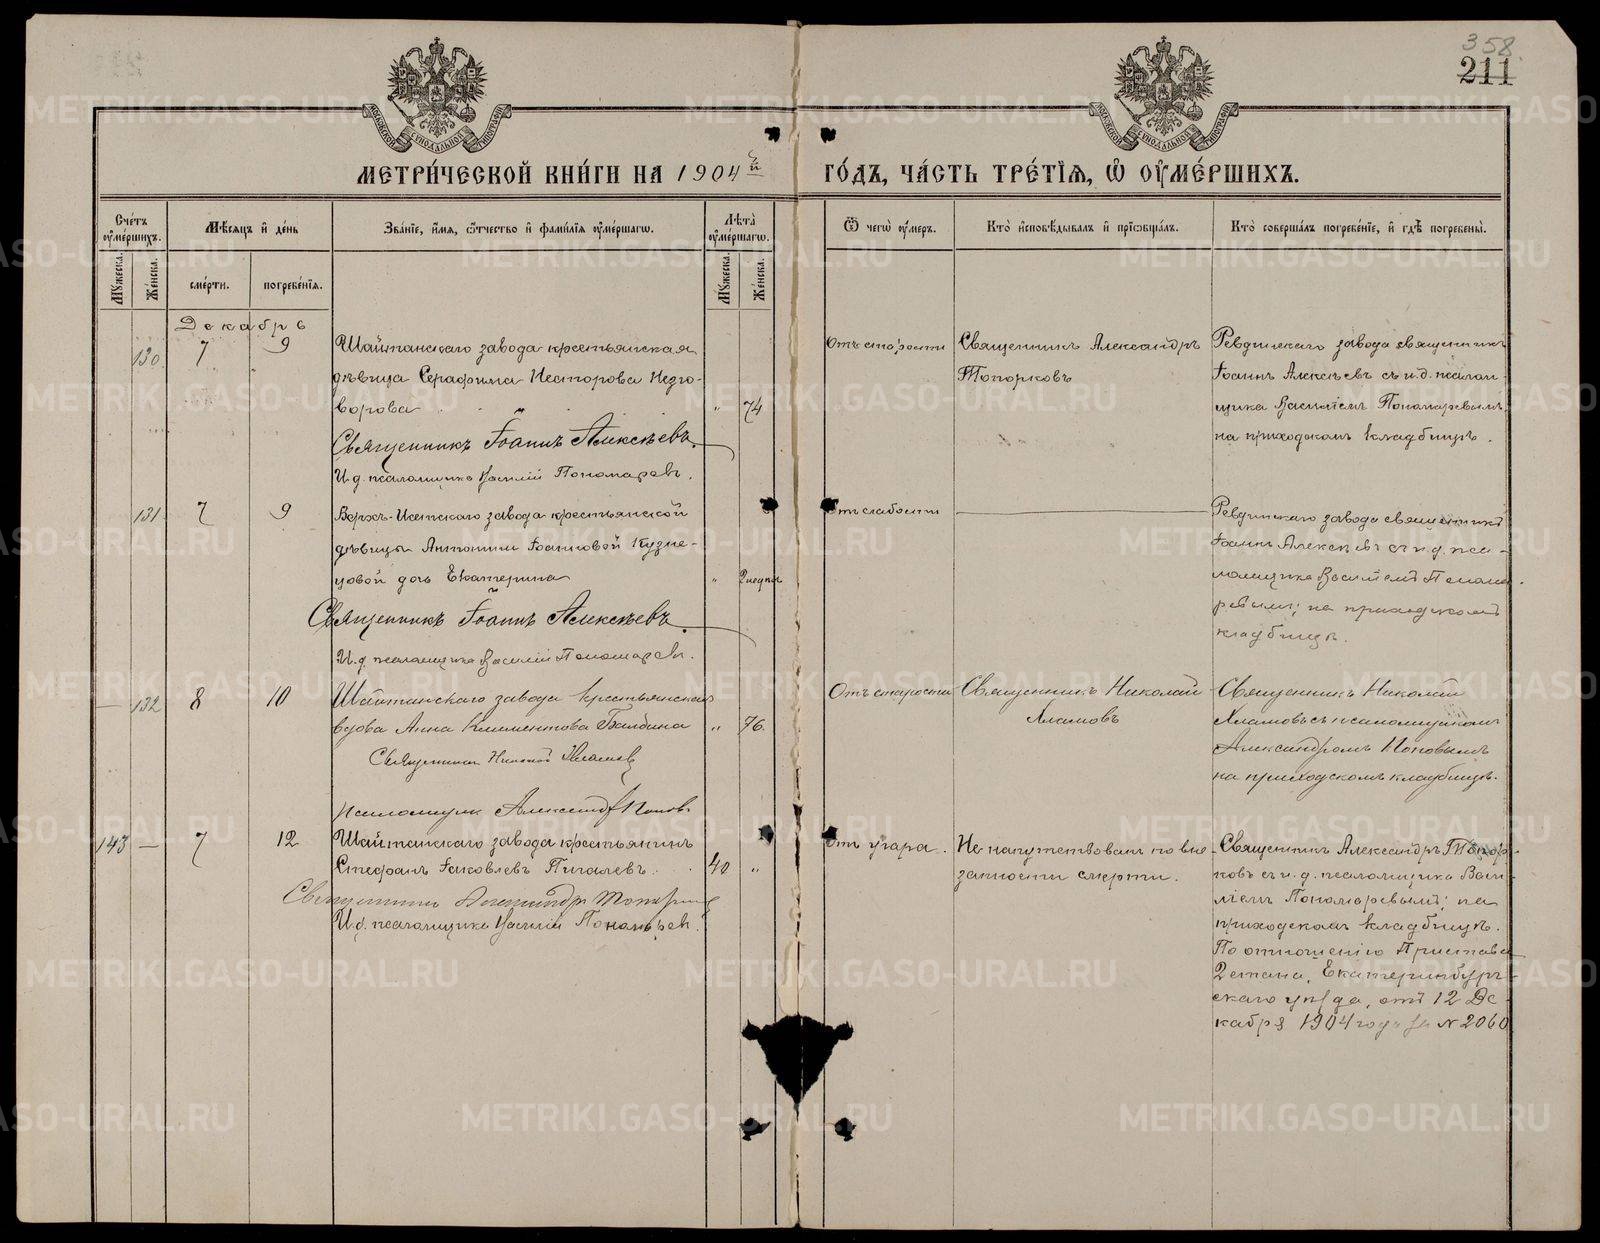 358
211
МОСКОВСКОЙ СѴНОДАЛЬНОЙ ТИПОГРАФІИ
МОСКОВСКОЙ СѴНОДАЛЬНОЙ ТИПОГРАФІИ
МЕТРИ́ЧЕСКОЙ КНИ́ГИ НА 1904й ГО́ДЪ, ЧА́СТЬ ТРЕ́ТІѦ, Ѡ ОУМЕ́РШИХЪ.
Сче́тъ оуме́ршихъ.
Мѣ́сѧцъ и҆ де́нь
Зва́ніе, и҆́мѧ, ѻ҆́тчество и҆ фами́лїѧ оуме́ршагѡ.
Лѣ́та оуме́ршагѡ.
Ѿ чегѡ̀ оу́меръ.
Кто̀ и҆сповѣ́дывалъ и҆ прїѡбща́лъ.
Кто̀ соверша́лъ погребе́нїе, и҆ гдѣ̀ погребены̀.
Мꙋ́жеска.
Же́нска.
сме́рти.
погребе́нїѧ.
Мꙋ́жеска.
Же́нска.
Декабрь
130 7 9
Шайтанскаго завода крестьянская
дѣвица Серафима Несторова Незго-
ворова " 74
Священникъ Іоаннъ Алексѣевъ.
И. д. псаломщика Василій Пономаревъ.
Отъ старости
Священникъ Александръ
Топорковъ
Ревдинскаго завода священникъ
Іоаннъ Алексѣевъ съ и. д. псалом-
щика Василіемъ Пономаревымъ
на приходскомъ кладбищѣ.
131 7 9
Верхъ-Исетскаго завода крестьянской
дѣвицы Антонины Іоанновой Кузне-
цовой дочь Екатерина " 2 недѣли
Священникъ Іоаннъ Алексѣевъ.
И. д. псаломщика Василій Пономаревъ.
Отъ слабости
Ревдинскаго завода священникъ
Іоаннъ Алексѣевъ съ и. д. пса-
ломщика Василіемъ Понома-
ревымъ; на приходскомъ
кладбищѣ.
— 132 8 10
Шайтанскаго завода крестьянская
вдова Анна Климентова Балдина " 76.
Священникъ Николай Хламовъ
псаломщик Александр Поповъ
Отъ старости
Священникъ Николай
Хламовъ
Священникъ Николай
Хламовъ съ псаломщикомъ
Александромъ Поповымъ
на приходскомъ кладбищѣ.
143 — 7 12
Шайтанскаго завода крестьянинъ
Стефанъ Іаковлевъ Пигалевъ. 40 "
Священникъ Александръ Топорковъ
И. д. псаломщика Василій Пономаревъ.
Отъ угара.
Не напутствованъ по вне-
запности смерти.
Священникъ Александръ Топор-
ковъ съ и. д. псаломщика Васи-
ліемъ Пономаревымъ; на
приходскомъ кладбищѣ.
По отношенію Пристава
2 стана, Екатеринбург-
скаго уѣзда, отъ 12 Де-
кабря 1904 года за № 2060
METRIKI.GASO-URAL.RU